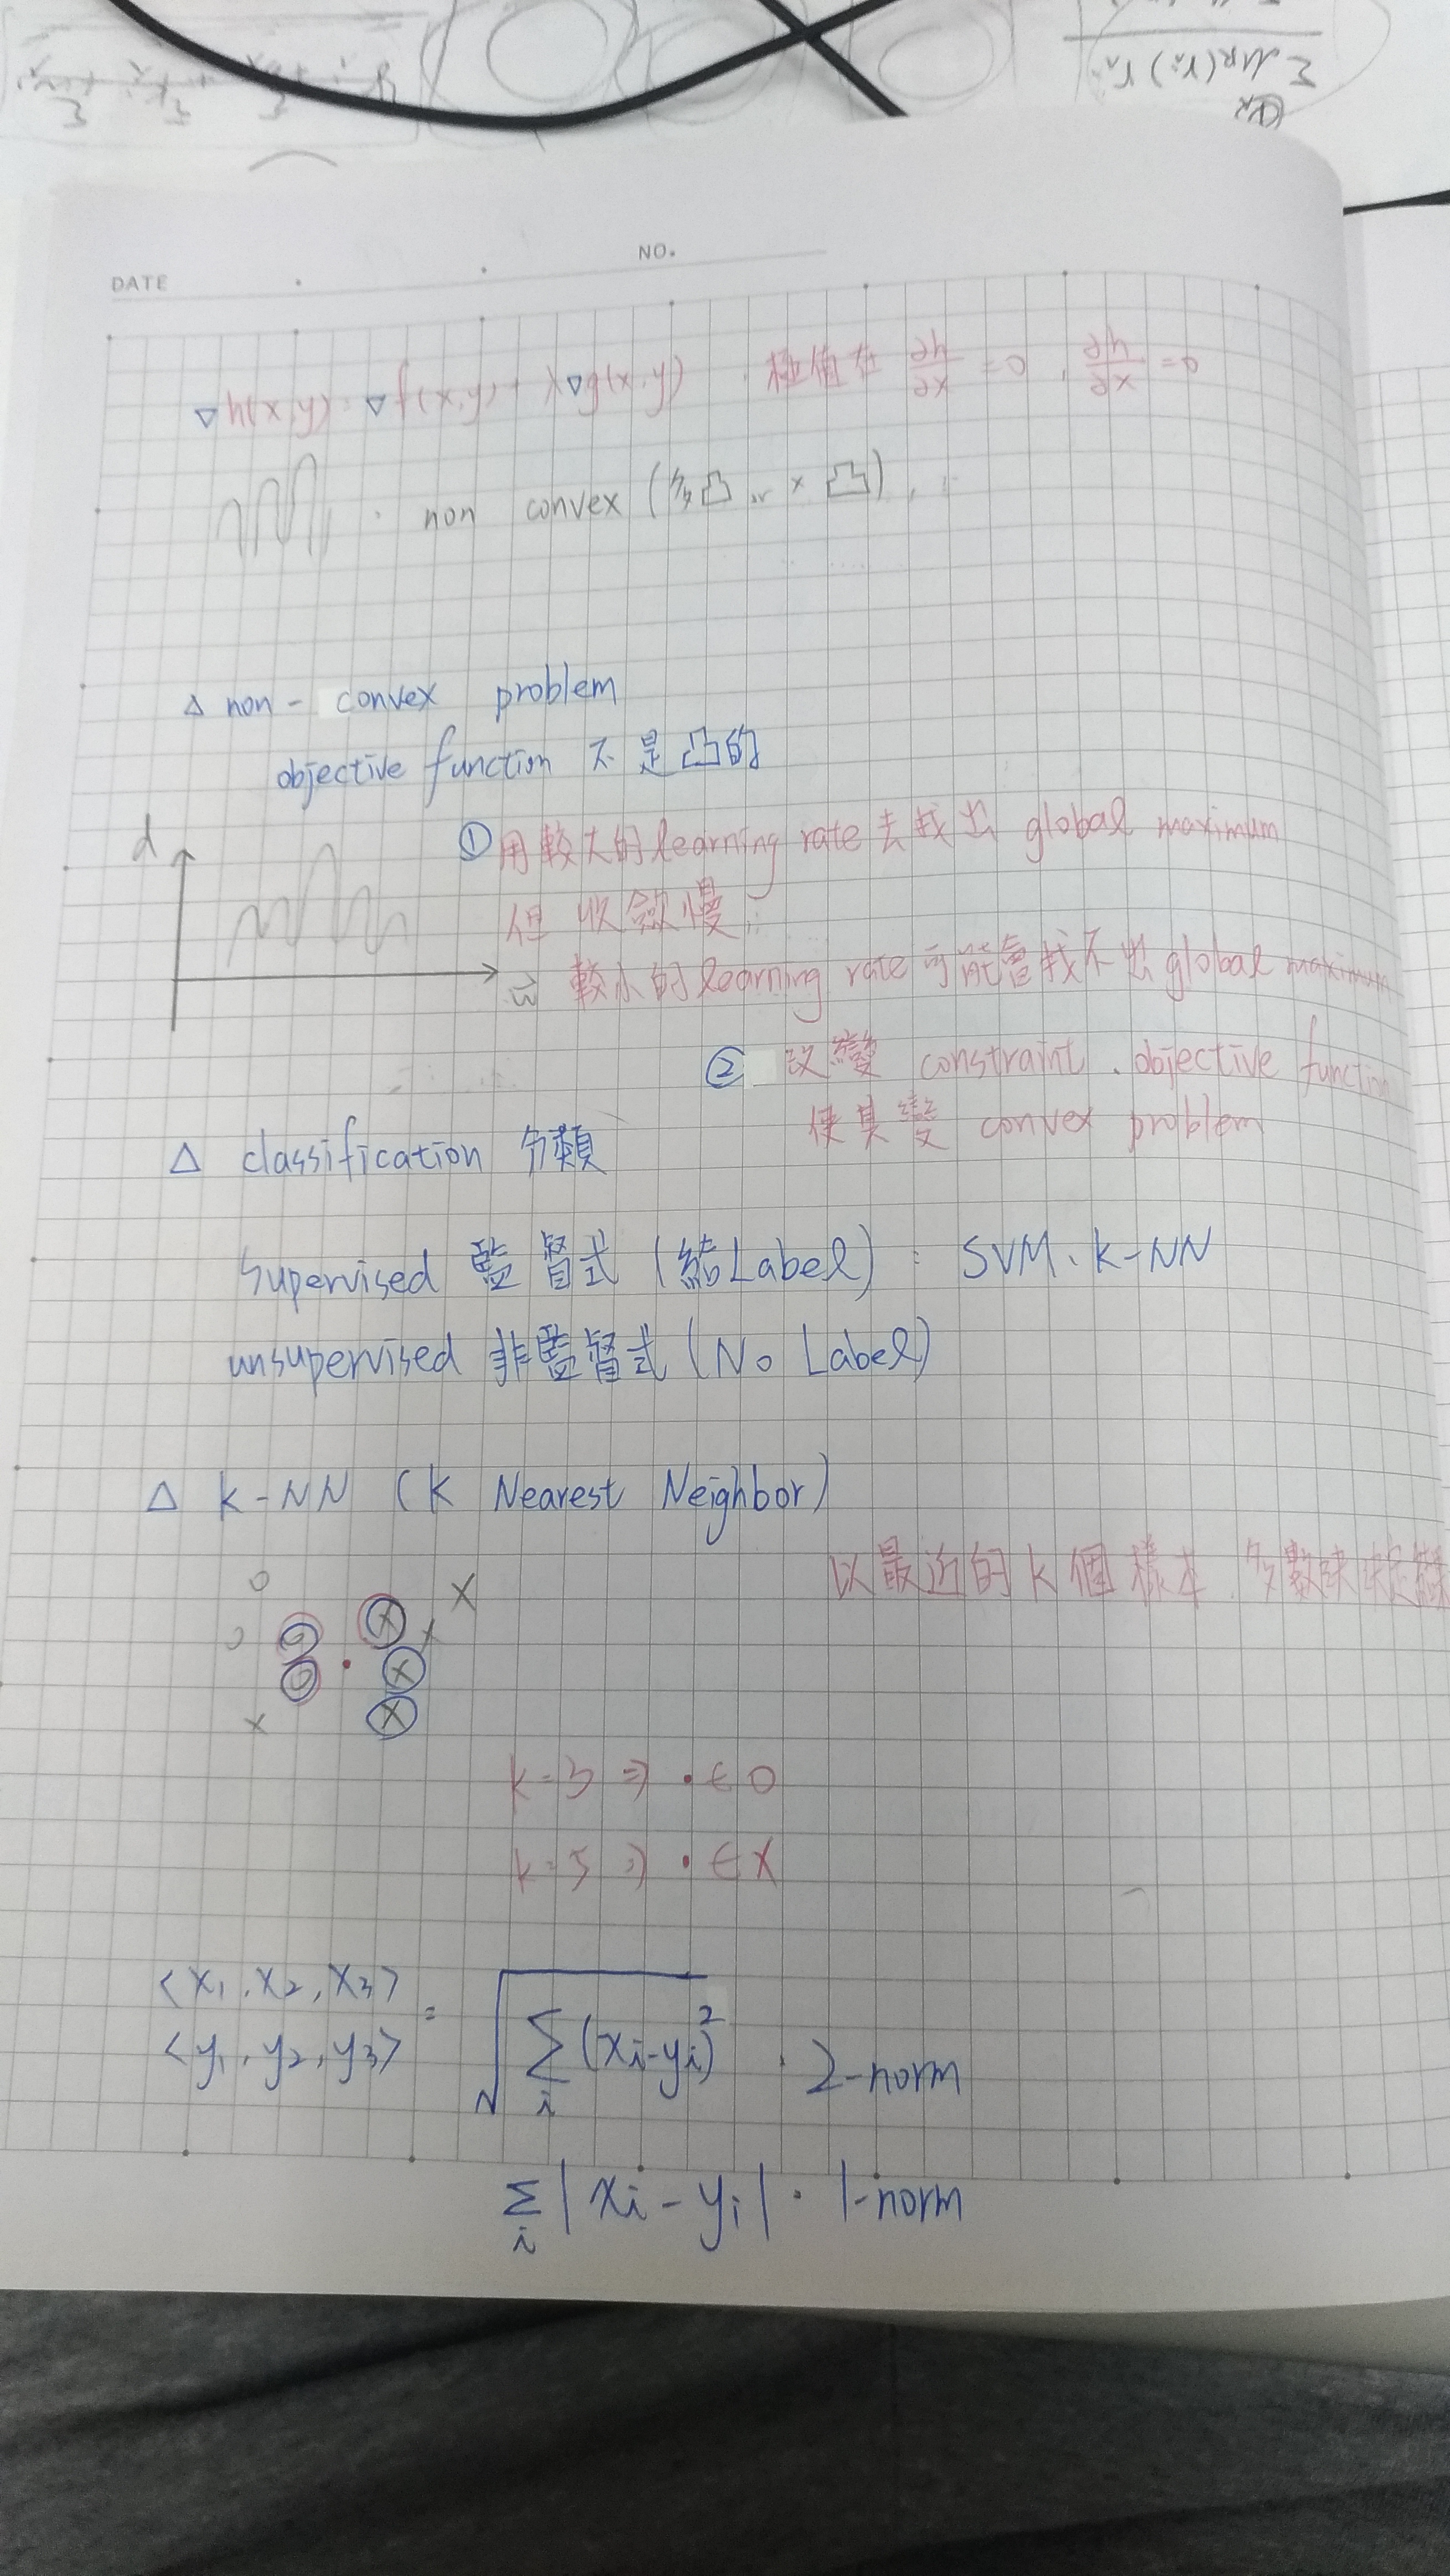 Σ μR(ri) ri
NO.
DATE
▽h(x,y) = ▽f(x,y) + λ▽g(x,y) . 極值在 ∂h/∂x = 0 , ∂h/∂x = 0
non convex (多凸 or × 凸)
△ non - convex problem
objective function 不是凸的
d
① 用較大的 learning rate 去找出 global maximum
但收斂慢;
w 較小的 learning rate 可能會找不出 global maximum
② 改變 constraint . objective function
使其變 convex problem
△ classification 分類
Supervised 監督式 (給 Label) : SVM、k-NN
unsupervised 非監督式 (No Label)
△ k-NN (k Nearest Neighbor)
以最近的 k 個樣本,多數決
k=3 ⇒ • ∈ O
k=5 ⇒ • ∈ X
<x1,x2,x3>
<y1,y2,y3> = √Σi(xi-yi)² . 2-norm
Σi|xi-yi| . 1-norm